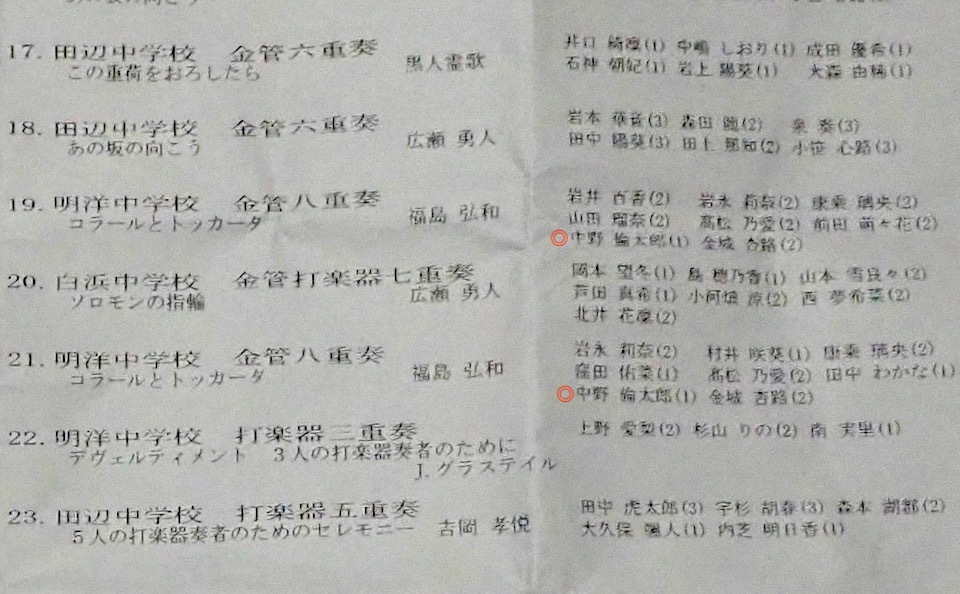 17. 田辺中学校 金管六重奏
この重荷をおろしたら 黒人霊歌
井口 綺凛(1) 中嶋 しおり(1) 成田 優希(1)
石神 妃(1) 岩上 陽葵(1) 大森 由稀(1)
18. 田辺中学校 金管六重奏
あの坂の向こう 広瀬 勇人
岩本 華音(3) 森田 (2) 泉 葵(3)
田中 陽葵(3) 田上 知(2) 小笹 心路(3)
19. 明洋中学校 金管八重奏
コラールとトッカータ 福島 弘和
岩井 百香(2) 岩永 莉奈(2) 康乗 璃央(2)
山田 瑠奈(2) 髙松 乃愛(2) 前田 萌々花(2)
◎中野 倫太郎(1) 金城 杏路(2)
20. 白浜中学校 金管打楽器七重奏
ソロモンの指輪 広瀬 勇人
岡本 望冬(1) 島 穂乃香(1) 山本 雪良々(2)
芦田 真希(1) 小河 涼(2) 西 夢希菜(2)
北井 花凜(2)
21. 明洋中学校 金管八重奏
コラールとトッカータ 福島 弘和
岩永 莉奈(2) 村井 咲葵(1) 康乗 璃央(2)
窪田 侑菜(1) 髙松 乃愛(2) 田中 わかな(1)
◎中野 倫太郎(1) 金城 杏路(2)
22. 明洋中学校 打楽器三重奏
デヴェルティメント 3人の打楽器奏者のために
J.グラステイル
上野 愛梨(2) 杉山 りの(2) 南 実里(1)
23. 田辺中学校 打楽器五重奏
5人の打楽器奏者のためのセレモニー 吉岡 孝悦
田中 虎太郎(3) 宇杉 胡春(3) 森本 湖都(2)
大久保 颯人(1) 内芝 明日香(1)